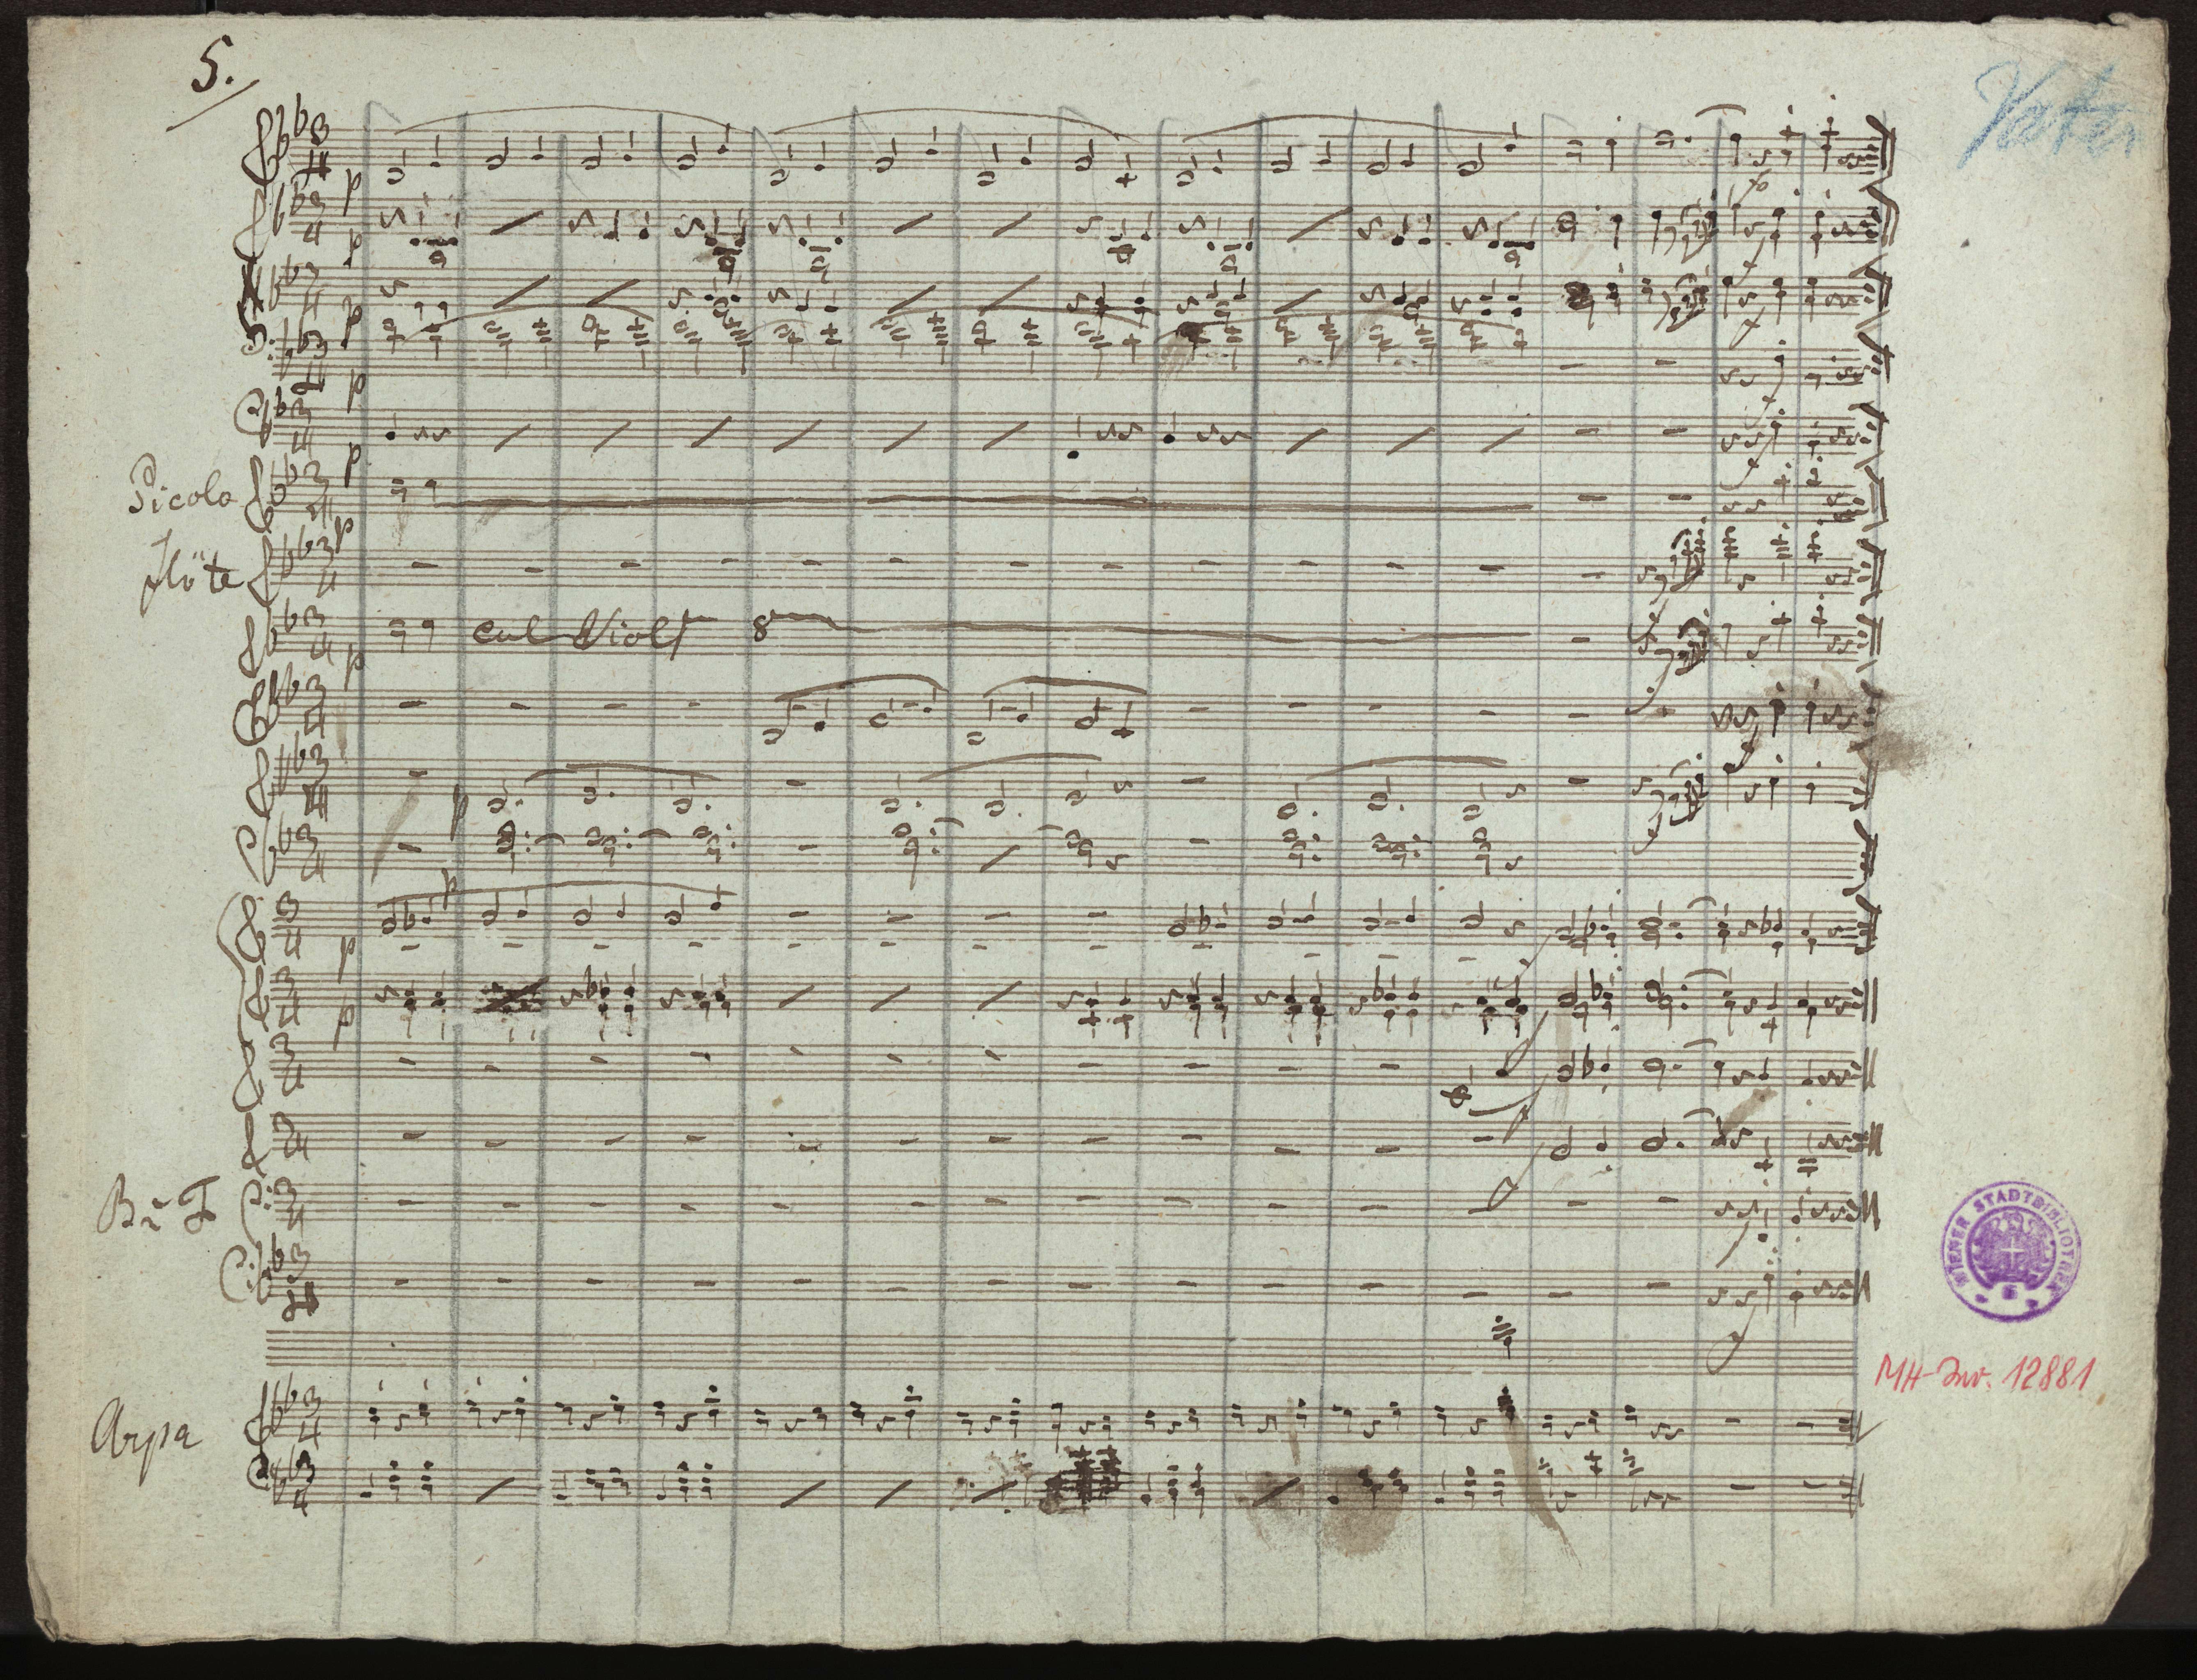 5.
Vater
p
p
p
p
p
Picolo
p
Flöte
col Viol
8
p
p
p
p
p
Arpa
WIENER STADTBIBLIOTHEK
MH-Inv. 12881